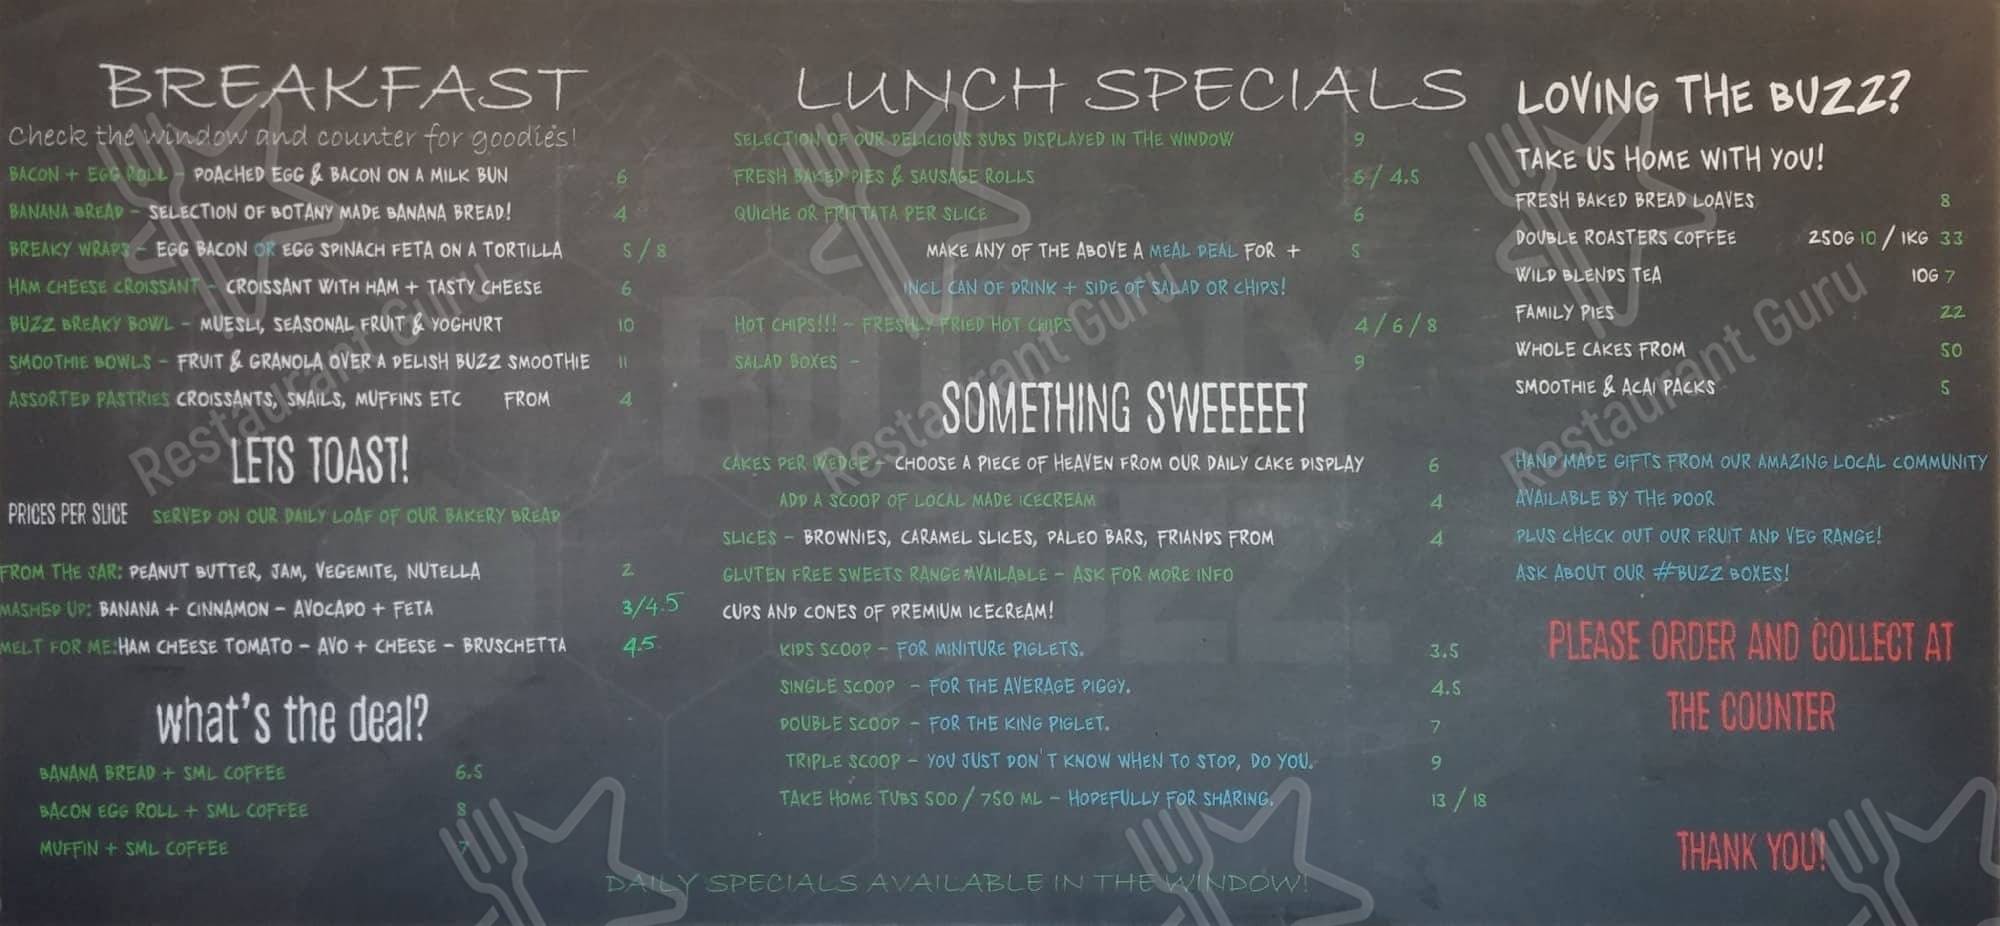 BREAKFAST
Check the window and counter for goodies!
BACON + EGG ROLL - POACHED EGG & BACON ON A MILK BUN 6
BANANA BREAD - SELECTION OF BOTANY MADE BANANA BREAD! 4
BREAKY WRAPS - EGG BACON OR EGG SPINACH FETA ON A TORTILLA 5 / 8
HAM CHEESE CROISSANT - CROISSANT WITH HAM + TASTY CHEESE 6
BUZZ BREAKY BOWL - MUESLI, SEASONAL FRUIT & YOGHURT 10
SMOOTHIE BOWLS - FRUIT & GRANOLA OVER A DELISH BUZZ SMOOTHIE 11
ASSORTED PASTRIES CROISSANTS, SNAILS, MUFFINS ETC FROM 4
LETS TOAST!
PRICES PER SLICE SERVED ON OUR DAILY LOAF OF OUR BAKERY BREAD
FROM THE JAR: PEANUT BUTTER, JAM, VEGEMITE, NUTELLA 2
MASHED UP: BANANA + CINNAMON - AVOCADO + FETA 3/4.5
MELT FOR ME: HAM CHEESE TOMATO - AVO + CHEESE - BRUSCHETTA 4.5
what's the deal?
BANANA BREAD + SML COFFEE 6.5
BACON EGG ROLL + SML COFFEE 8
MUFFIN + SML COFFEE 7
LUNCH SPECIALS
SELECTION OF OUR DELICIOUS SUBS DISPLAYED IN THE WINDOW 9
FRESH BAKED PIES & SAUSAGE ROLLS 6 / 4.5
QUICHE OR FRITTATA PER SLICE 6
MAKE ANY OF THE ABOVE A MEAL DEAL FOR + 5
INCL CAN OF DRINK + SIDE OF SALAD OR CHIPS!
HOT CHIPS!!! - FRESHLY FRIED HOT CHIPS 4 / 6 / 8
SALAD BOXES - 9
SOMETHING SWEEEEET
CAKES PER WEDGE - CHOOSE A PIECE OF HEAVEN FROM OUR DAILY CAKE DISPLAY 6
ADD A SCOOP OF LOCAL MADE ICECREAM 4
SLICES - BROWNIES, CARAMEL SLICES, PALEO BARS, FRIANDS FROM 4
GLUTEN FREE SWEETS RANGE AVAILABLE - ASK FOR MORE INFO
CUPS AND CONES OF PREMIUM ICECREAM!
KIDS SCOOP - FOR MINITURE PIGLETS. 3.5
SINGLE SCOOP - FOR THE AVERAGE PIGGY. 4.5
DOUBLE SCOOP - FOR THE KING PIGLET. 7
TRIPLE SCOOP - YOU JUST DON'T KNOW WHEN TO STOP, DO YOU. 9
TAKE HOME TUBS 500 / 750 ML - HOPEFULLY FOR SHARING. 13 / 18
DAILY SPECIALS AVAILABLE IN THE WINDOW!
LOVING THE BUZZ?
TAKE US HOME WITH YOU!
FRESH BAKED BREAD LOAVES 8
DOUBLE ROASTERS COFFEE 250G 10 / 1KG 33
WILD BLENDS TEA 10G 7
FAMILY PIES 22
WHOLE CAKES FROM 50
SMOOTHIE & ACAI PACKS 5
HAND MADE GIFTS FROM OUR AMAZING LOCAL COMMUNITY
AVAILABLE BY THE DOOR
PLUS CHECK OUT OUR FRUIT AND VEG RANGE!
ASK ABOUT OUR #BUZZ BOXES!
PLEASE ORDER AND COLLECT AT
THE COUNTER
THANK YOU!
BOTANY
BUZZ
Restaurant Guru
Restaurant Guru
Restaurant Guru